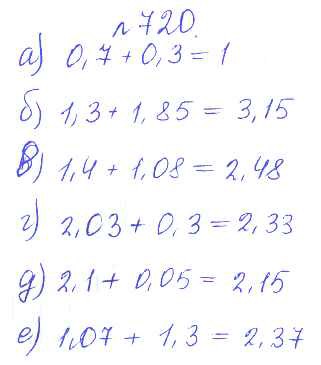 № 720.
а) 0,7 + 0,3 = 1
б) 1,3 + 1,85 = 3,15
в) 1,4 + 1,08 = 2,48
г) 2,03 + 0,3 = 2,33
д) 2,1 + 0,05 = 2,15
е) 1,07 + 1,3 = 2,37